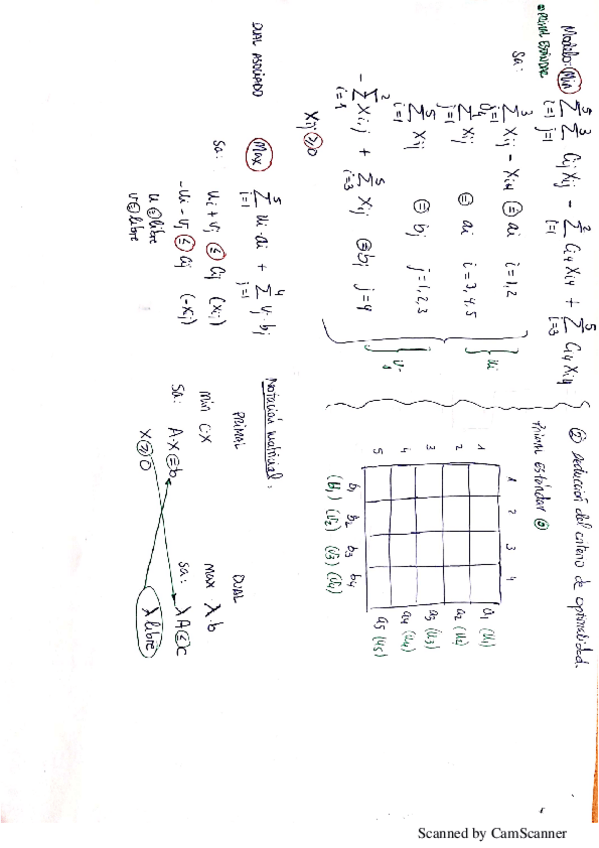 Modelo: Min ∑_{i=1}^{5} ∑_{j=1}^{3} Cij Xij - ∑_{i=1}^{2} Ci4 Xi4 + ∑_{i=3}^{5} Ci4 Xi4
PRIMAL ESTÁNDAR
Sa:
∑_{j=1}^{3} Xij - Xi4 = ai i = 1,2
∑_{j=1}^{4} Xij = ai i = 3,4,5
∑_{i=1}^{5} Xij = bj j = 1,2,3
- ∑_{i=1}^{2} Xij + ∑_{i=3}^{5} Xij = bj j = 4
Xij ≥ 0
ui
vj
DUAL ASOCIADO
Max ∑_{i=1}^{5} ui·ai + ∑_{j=1}^{4} vj·bj
Sa:
ui + vj ≤ Cij (Xij)
-ui - vj ≤ Cij (-Xij)
u = libre
v = libre
② Deducción del criterio de optimalidad.
Primal estándar
1 2 3 4
1 a1 (u1)
2 a2 (u2)
3 a3 (u3)
4 a4 (u4)
5 a5 (u5)
b1 b2 b3 b4
(v1) (v2) (v3) (v4)
Notación matricial:
PRIMAL DUAL
min C·X max λ·b
Sa: A·X = b Sa: λA ≤ C
X ≥ 0 λ libre
Scanned by CamScanner